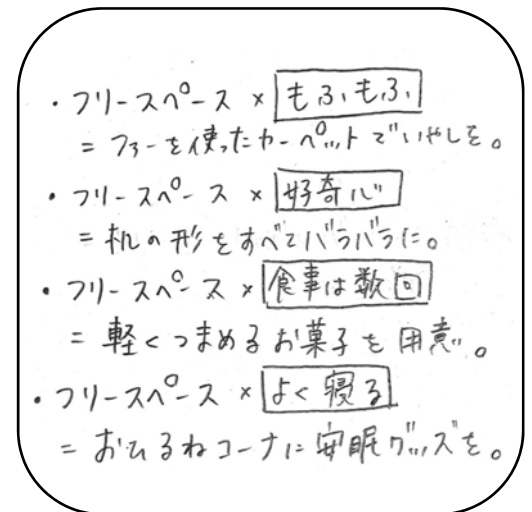 ・フリースペース × もふもふ
= ファーを使ったカーペットでいやしを。
・フリースペース × 好奇心
= 机の形をすべてバラバラに。
・フリースペース × 食事は数回
= 軽くつまめるお菓子を用意。
・フリースペース × よく寝る
= おひるねコーナに安眠グッズを。